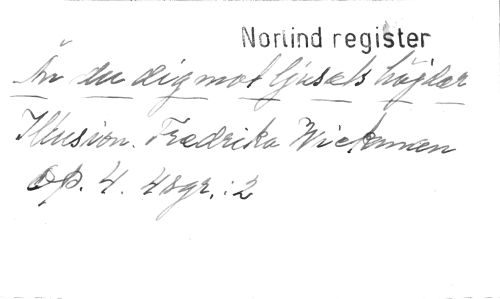 Norlind register
När du dig mot ljusets höjder
Illusion. Fredrika Wickman
op. 4. 4 sgr.:2